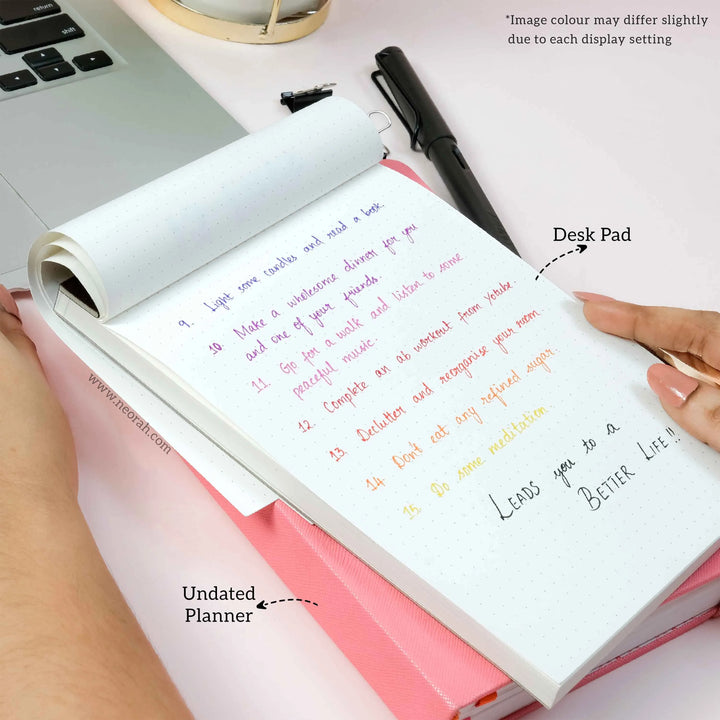 return
shift
*Image colour may differ slightly
due to each display setting
Desk Pad
9. Light some candles and read a book.
10. Make a wholesome dinner for you
and one of your friends.
11. Go for a walk and listen to some
peaceful music.
12. Complete an ab workout from Yotube.
13. Declutter and reorganise your room
14. Don't eat any refined sugar
15. Do some meditation
LEADS you to a
BETTER LIFE!!!
www.neorah.com
Undated
Planner